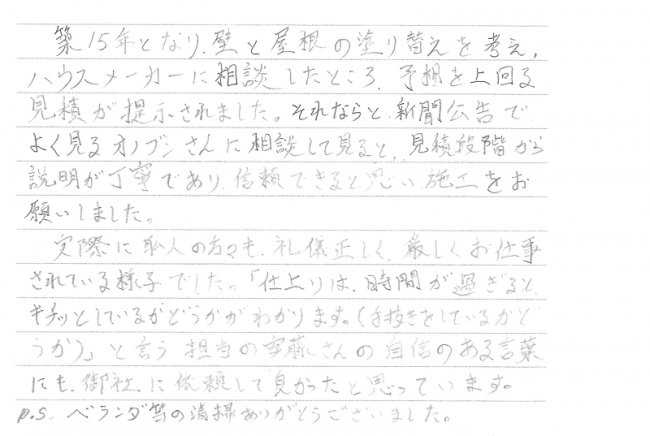 築15年となり、壁と屋根の塗り替えを考え、
ハウスメーカーに相談したところ、予想を上回る
見積が提示されました。それならと、新聞公告で
よく見るオノブンさんに相談して見ると、見積段階から
説明が丁寧であり、信頼できると思い、施工をお
願いしました。
実際に職人の方々も、礼儀正しく、厳しくお仕事
されている様子でした。「仕上りは、時間が過ぎると、
キチッとしているかどうかがわかります。(手抜きをしているかど
うか)」と言う担当の安藤さんの自信のある言葉
にも、御社に依頼して良かったと思っています。
p.s. ベランダ等の清掃ありがとうございました。